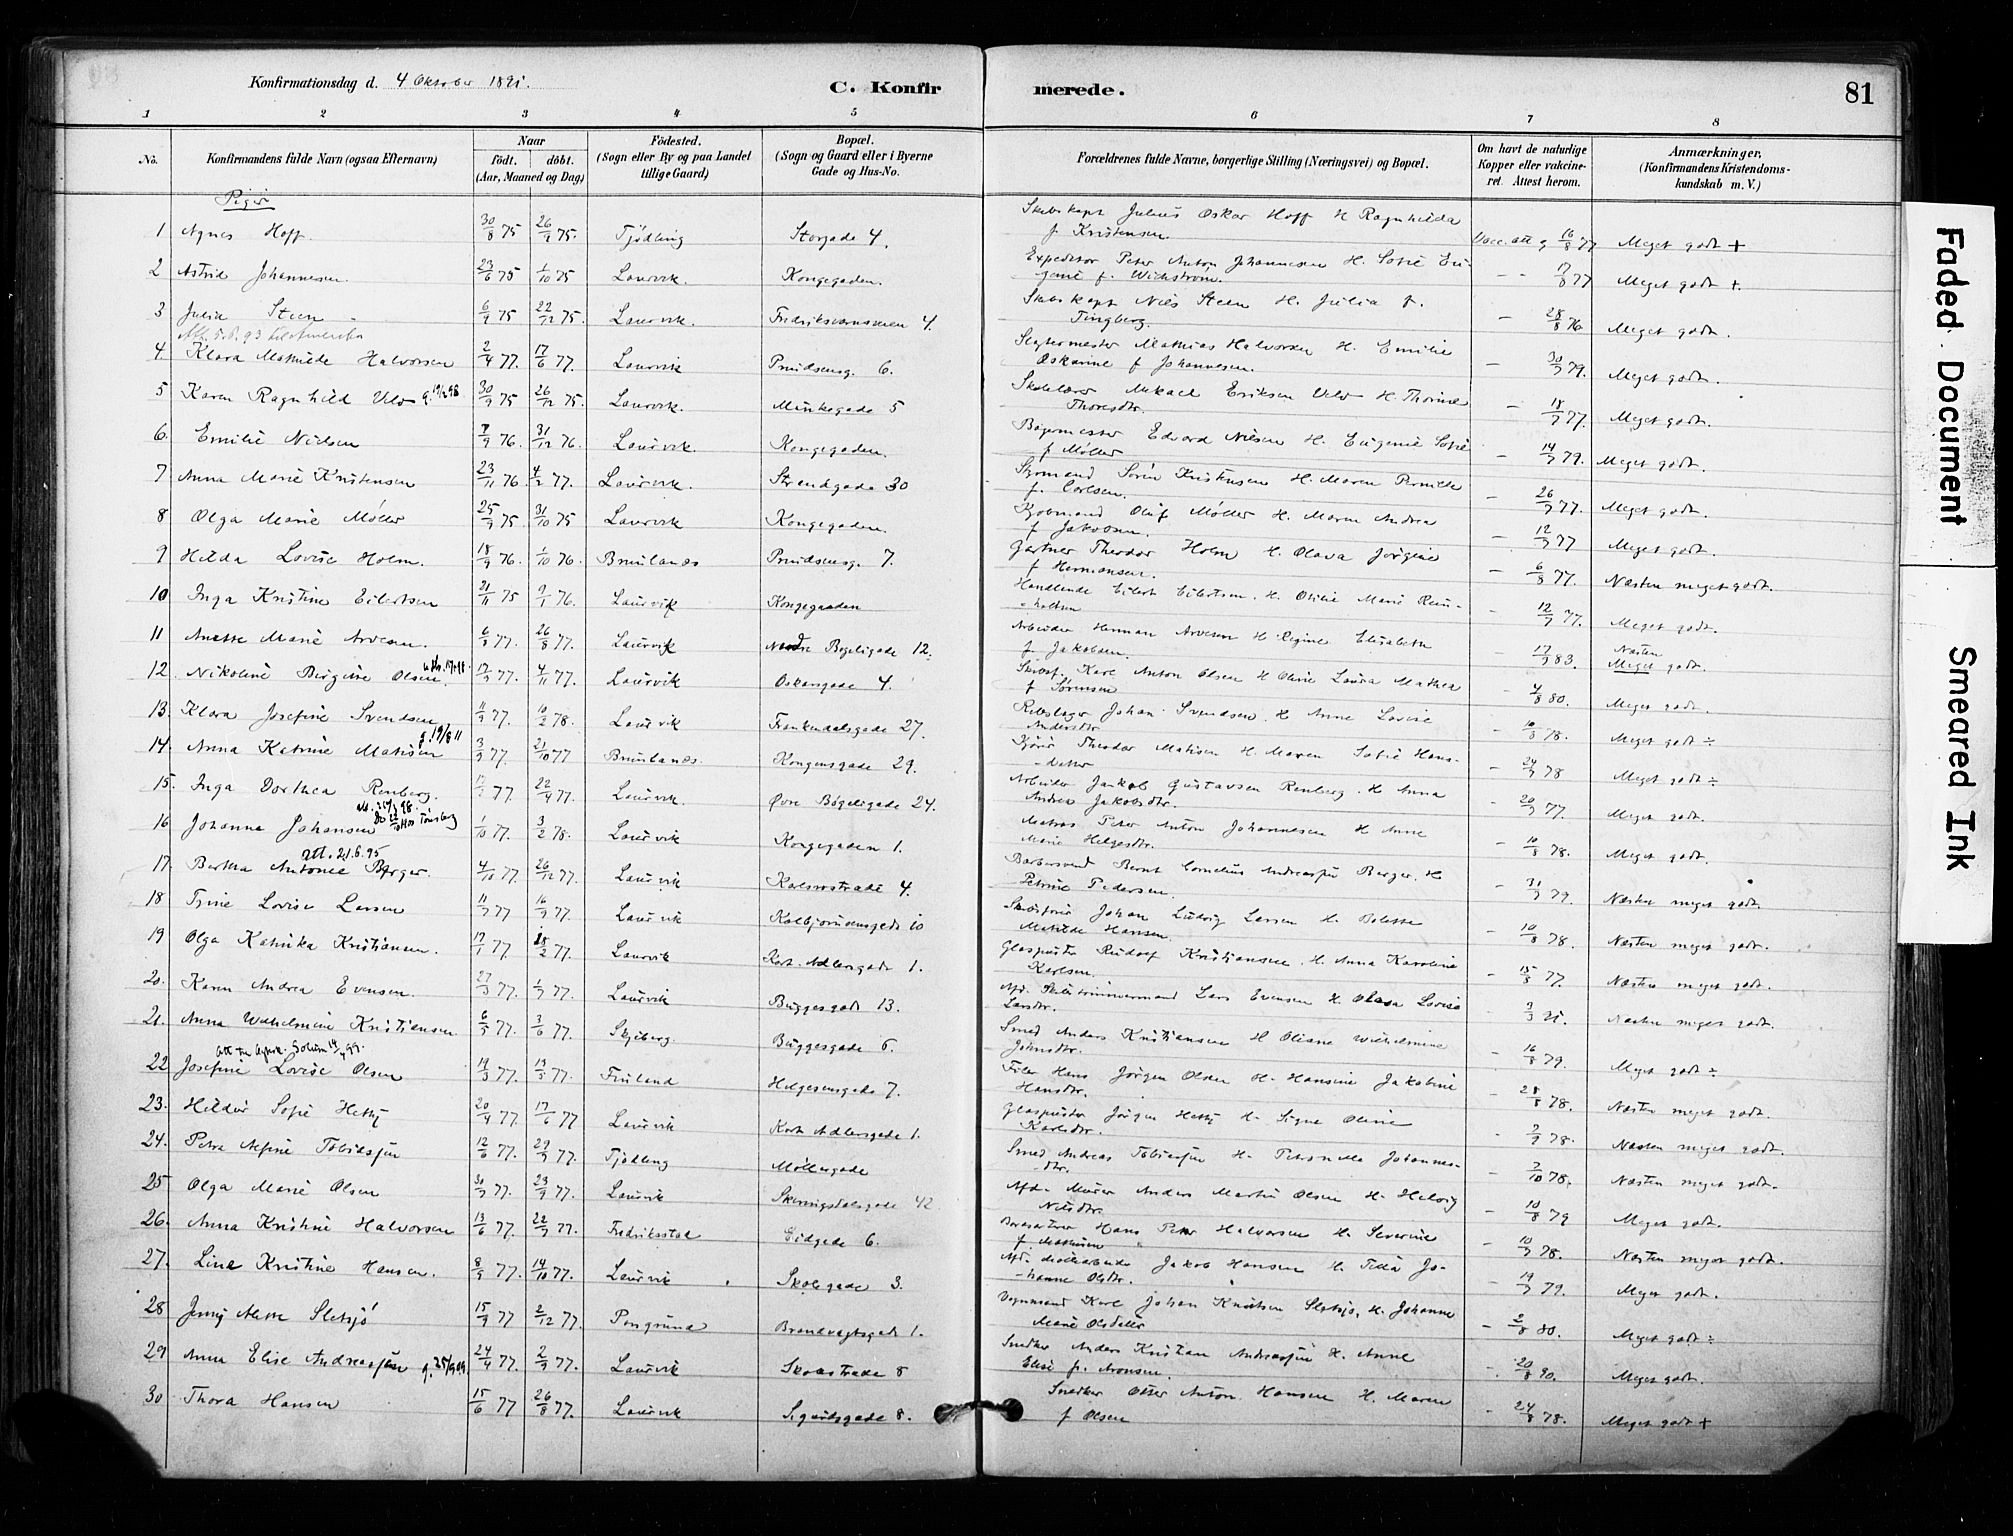 Konfirmationsdag d. 4 Oktober 1891.
C. Konfir
merede.
81
1 2 3 4 5 6 7 8
No.
Konfirmandens fulde Navn (ogsaa Efternavn)
Naar
født. døbt.
(Aar, Maaned og Dag)
Fødested.
(Sogn eller By og paa Landet
tillige Gaard)
Bopæl.
(Sogn og Gaard eller i Byerne
Gade og Hus-No.
Forældrenes fulde Navne, borgerlige Stilling (Næringsvei) og Bopæl.
Om havt de naturlige
Kopper eller vakcine-
ret. Attest herom.
Anmærkninger,
(Konfirmandens Kristendoms-
kundskab m. V.)
Piger
1 Agnes Hoff. 30/8 75 26/9 75. Tjødling Storgade 4. Skibskapt Julius Oskar Hoff H Ragnhilda
f. Kristensen. Vacc. att 16/8 77 Meget godt +
2 Astrid Johannesen. 23/6 75 1/10 75 Laurvik. Kongegaden. Expeditør Peter Anton Johannesen H. Sofie Eu-
genie f. Wickstrøm. 77 Meget godt +.
3 Julia Steen 6/9 75 22/12 75. Laurvik. Fredriksværnsveien 4. Skibskapt Niels Steen H. Julia f.
Tingberg. 28/8 76 Meget godt.
Att. 5.8.93 til Amerika
4. Klara Mathilde Halvorsen 2/4 77. 17/6 77. Laurvik Prindsensg. 6. Slagtermester Mathias Halvorsen H. Emilie
Oskarine f Johannesen. 79. Meget godt.
5 Karen Ragnhild 30/9 75 26/12 75. Laurvik. Munkegade 5 Mikael Eriksen H. Thorine
Thoresdtr. 77. Meget godt.
6. Emilie Nielsen 76. 31/12 76. Laurvik. Kongegaden. Bagermester Edvard Nilsen H. Eugenie Sofie
f Møller 79. Meget godt.
7 Anna Marie Kristensen 23/11 76. 4/2 77. Laurvik. Strandgade 30 Styrmand Søren Kristensen H. Maren Pernille
f. Carlsen. 77. Meget godt.
8 Olga Marie Møller 25/9 75 31/10 75 Laurvik Kongegaden. Kjøbmand Oluf Møller H. Maren Andrea
f Jakobsen. 77 Meget godt.
9 Hilda Lovise Holm. 18/9 76. 1/10 76. Brunlanæs Prindsensg. 7. Gartner Theodor Holm H. Olava Jørgine
f Hermansen. 6/8 77. Næsten meget godt.
10 Inga Kristine Eilertsen 21/11 75 9/1 76. Laurvik Kongegaden Handlende Eilert Eilertsen. H. Otilie Marie Rein-
holtsen 77. Meget godt.
11 Anette Marie Arvesen. 77. 26/8 77. Laurvik Nedre Bøgeligade 12. Arbeider Herman Arvesen H. Regine Elisabeth
f. Jakobsen. 83. Næsten
Meget godt.
12. Nikoline Birgine Olsen. 77. 4/11 77. Laurvik Oskarsgade 4. Karl Anton Olsen H Oline Laura Mathea
f Sørensen 4/8 80. Meget godt.
13. Klara Josefine Svendsen. 77. 10/2 78. Laurvik Frankendalsgade 27. Rebslager Johan Svendsen. H. Anne Lovise
Andersdtr. 10/8 78. Meget godt ÷
g. 19/8 11
14. Anna Katrine Matisen 77. 21/10 77 Brunlanæs. Kongensgade 29. Theodor Matisen H. Maren Sofie Hans-
datter 78 Meget godt ÷
15. Inga Dorthea Renberg. 77. 22/4 77. Laurvik. Øvre Bøgeligade 24. Arbeider Jakob Gustavsen Renberg. H Anna
Andrea Jakobsdtr. 77. Meget godt.
16 Johanna Johansen 1/10 77. 3/2 78. Laurvik Kongegaden 1. Matros Peter Anton Johannesen H Anne
Marie Helgesdtr. 10/8 78. Meget godt.
att. 21.6.95
17. Bertha Antonie Berger. 4/10 77 26/12 77. Laurvik Karlsrostræde 4. Barbersvend Bernt Cornelius Andreassen Berger. H
Petrine Pedersen. 79. Næsten meget godt.
18 Trine Lovise Larsen 77 16/9 77. Laurvik Kolbjørnsensgade 10 Johan Ludvig Larsen H. Bolette
Matilde Hansen. 10/8 78. Næsten meget godt.
19 Olga Katinka Kristiansen. 17/1 77. 18/2 77. Laurvik Kort Adlersgade 1. Glaspuster Rudolf Kristiansen. H. Anna Karoline
Karlsen. 15/8 77. Næsten meget godt.
20. Karen Andrea Evensen. 27/3 77. 77. Laurvik Buggesgade 13. Afd. Skibstømmermand Lars Evensen H. Olava Lovise
Larsdtr. Næsten meget godt.
21. Anna Wilhelmine Kristiansen 6/5 77. 3/6 77. Skjeberg. Buggesgade 6. Smed Anders Kristiansen H Oliane Wilhelmine
Johnsdtr. 16/8 79. Meget godt ÷
22 Josefine Lovise Olsen 77. 77. Fruland Helgesensgade 7. Filer Hans Jørgen Olsen H. Hansine Jakobine
Hansdtr. 28/8 78. Næsten meget godt.
23. Hildur Sofie Hetty 20/4 77. 17/6 77 Laurvik Kort Adlersgade 1. Glaspuster Jørgen Hetty H. Signe Oline
Karlsdtr. 78. Næsten meget godt.
24. Petra Alfine Tobiassen 12/6 77. 29/9 77. Tjødling Møllergade Smed Andreas Tobiassen H. Petronelle Johannes-
dtr. 78. Næsten meget godt.
25 Olga Marie Olsen 77. 23/9 77. Laurvik Skiringsdalsgade 42 Afd. Murer Anders Martin Olsen H. Helvig
Nilsdtr. 10/8 79 Meget godt.
26. Anna Kristine Halvorsen 13/6 77. 22/9 77. Fredriksstad Eidgade 6. Hans Peter Halvorsen H. Severine
f. Mathisen 78. Næsten meget godt.
27. Line Kristine Hansen. 8/9 77. 14/10 77. Laurvik Skolegade 3. Afd. Jakob Hansen H. Tilla Jo-
hanne Olsdtr. 79. Meget godt.
28 Jenny Mette Sletsjø 15/9 77 2/12 77. Porsgrund Brandvagtsgade 1. Vognmand Karl Johan Knutsen Sletsjø. H. Johanne
Marie Olsdatter 2/8 80. Meget godt ÷
29 Anna Elise Andreassen 24/4 77. 2/9 77. Laurvik Skolestræde 8 Snedker Anders Kristian Andreassen H. Anne
Elise f. Aronsen. 20/8 90. Meget godt.
30 Thora Hansen 15/6 77 26/8 77. Laurvik Sigurdsgade 8. Snedker Otter Anton Hansen H. Maren
f Olsen 24/8 78. Meget godt +
Faded Document
Smeared Ink